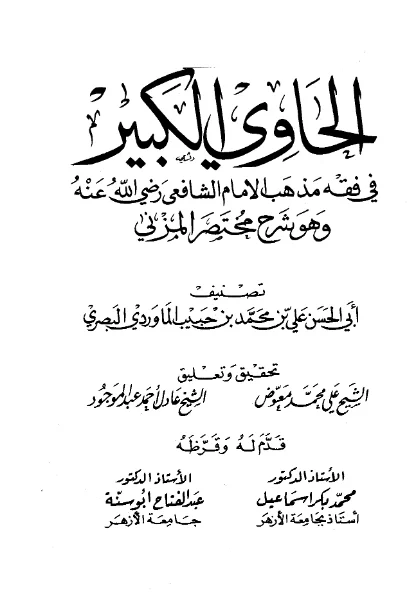 الحاوي الكبير
في فقه مذهب الإمام الشافعي رضي الله عنه
وهو شرح مختصر المزني
تصنيف
أبي الحسن علي بن محمد بن حبيب الماوردي البصري
تحقيق وتعليق
الشيخ علي محمد معوض الشيخ عادل أحمد عبد الموجود
قدم له وقرظه
الأستاذ الدكتور الأستاذ الدكتور
محمد بكر اسماعيل عبد الفتاح أبو سنة
أستاذ بجامعة الأزهر جامعة الأزهر